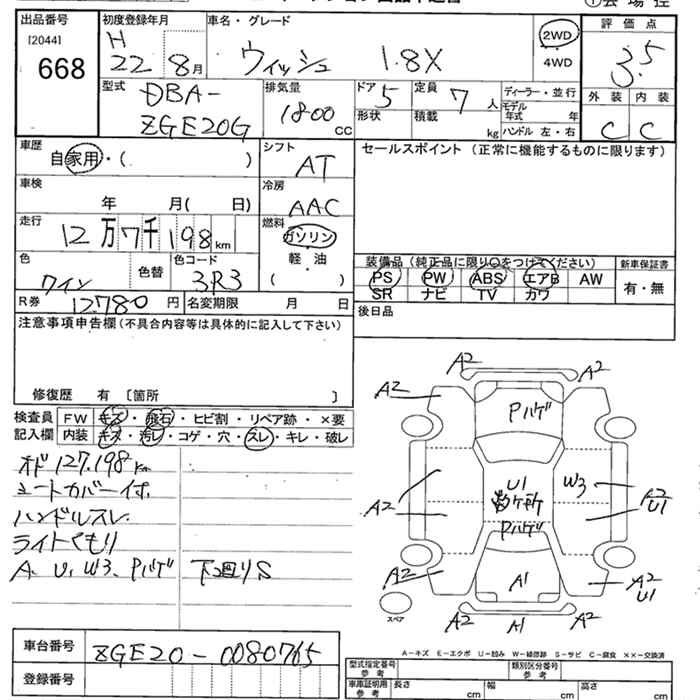 出品番号
[2044]
668
初度登録年月
H
22 8月
車名・グレード
ウィッシュ 1.8X
2WD
4WD
評価点
3.5
型式
DBA-
ZGE20G
排気量
1800
CC
ドア
5
形状
定員
7
人
積載
kg
ディーラー・並行
モデル
年式 年
ハンドル 左・右
外装 内装
C C
車歴
自家用・( )
シフト
AT
セールスポイント (正常に機能するものに限ります)
車検
年 月( 日)
冷房
AAC
走行
12万7千198km
燃料
ガソリン
軽・油
( )
色
ワイン
色替
色コード
3R3
装備品(純正品に限り○をつけてください)
PS PW ABS エアB AW
SR ナビ TV カワ
新車保証書
有・無
R券 12780円
名変期限 月 日
後日品
注意事項申告欄(不具合内容等は具体的に記入して下さい)
修復歴 有 〔箇所 〕
検査員
記入欄
FW キズ・飛石・ヒビ割・リペア跡・×要
内装 キズ・汚レ・コゲ・穴・スレ・キレ・破レ
オド127.198Km
シートカバー付.
ハンドルスレ.
ライトくもり
A、U、W3、Pハゲ 下廻りS
A2 A2
A2 A2
Pハゲ
U1
数ヶ所
Pハゲ
W3
A2
A2
U1
A2
A1
A2
U1
A2 A1 A2
スペア
A-キズ E-エクボ U-凹み W-補修跡 S-サビ C-腐食 ××-交換済
車台番号
ZGE20-0080765
登録番号
型式指定番号
参考
類別区分番号
参考
車庫証明用
参考
長さ cm
幅 cm
高さ cm